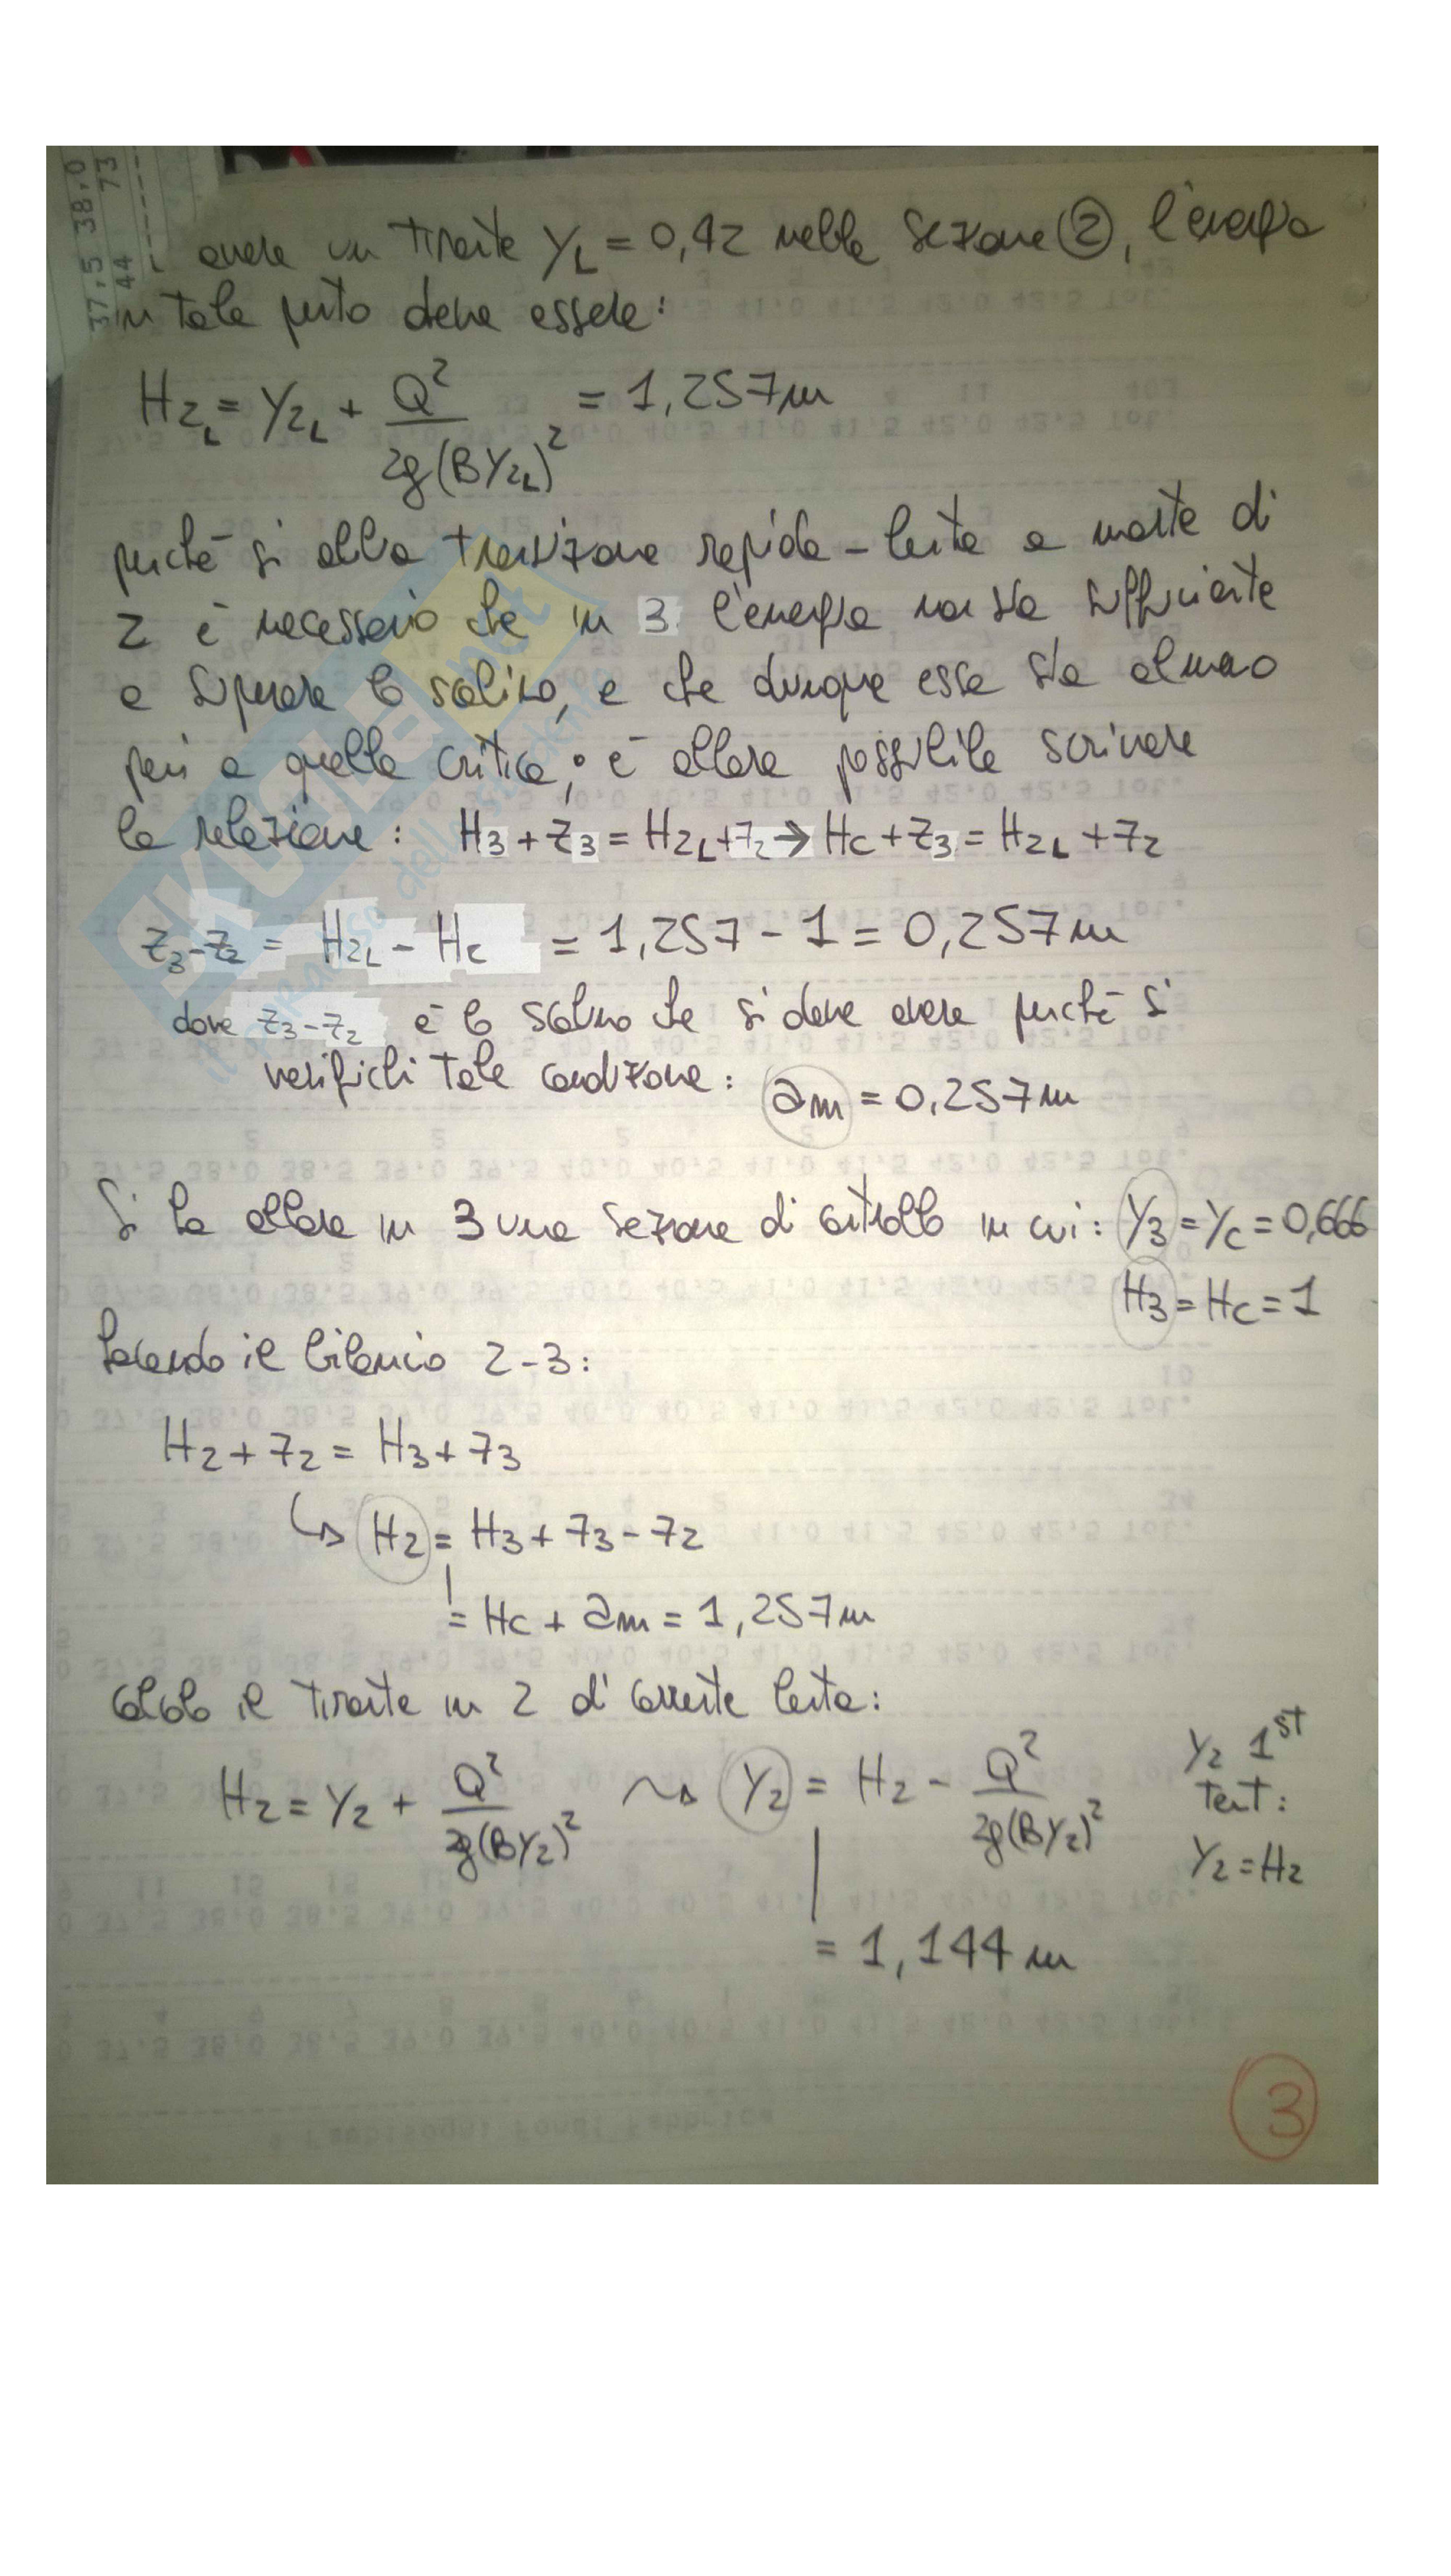 avere un tirante YL = 0,42 nella sezione ②, l'energia
in tale punto deve essere:
H2L = Y2L + Q² / 2g(BY2L)² = 1,257 m
perché si abbia transizione rapida - lenta a monte di
2 è necessario che in 3 l'energia non sia sufficiente
a superare lo scalino, e che dunque essa sia almeno
pari a quella critica; è allora possibile scrivere
la relazione: H3 + z3 = H2L + z2 → Hc + z3 = H2L + z2
z3 - z2 = H2L - Hc = 1,257 - 1 = 0,257 m
dove z3 - z2 è lo scalino che si deve avere perché si
verifichi tale condizione: am = 0,257 m
Si ha allora in 3 una sezione di controllo in cui: Y3 = Yc = 0,666
H3 = Hc = 1
Facendo il bilancio 2-3:
H2 + z2 = H3 + z3
↳ H2 = H3 + z3 - z2
= Hc + am = 1,257 m
calcolo il tirante in 2 di corrente lenta:
H2 = Y2 + Q² / 2g(BY2)² ⇝ Y2 = H2 - Q² / 2g(BY2)²
= 1,144 m
Y2 1st
tent:
Y2 = H2
3
37,5 38,0
44 73
SKUOLA.net